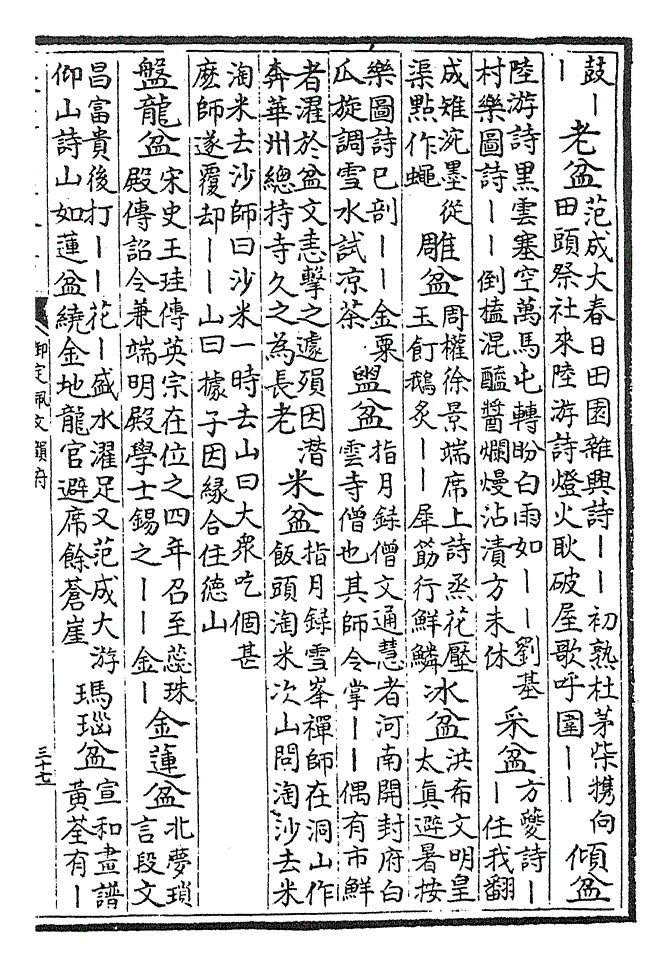 鼓｜
｜
老盆
范成大春日田園雜興詩｜｜初熟杜茅柴携向
田頭祭社來陸游詩燈火耿破屋歌呼圍｜｜
傾盆
陸游詩黑雲塞空萬馬屯轉盼白雨如｜｜劉基
村樂圖詩｜｜倒榼混醯醬爛熳沾漬方未休
采盆
方夔詩｜
｜任我翻
成雉涴墨從
渠點作蠅
雕盆
周權徐景端席上詩烝花壓
玉飣鵝炙｜｜犀筯行鮮鱗
冰盆
洪希文明皇
太真避暑按
樂圖詩已剖｜｜金粟
瓜旋調雪水試凉茶
盥盆
指月録僧文通慧者河南開封府白
雲寺僧也其師令掌｜｜偶有市鮮
者濯於盆文恚擊之遽殞因潛
奔華州總持寺久之為長老
米盆
指月録雪峯禪師在洞山作
飯頭淘米次山問淘沙去米
淘米去沙師曰沙米一時去山曰大衆吃個甚
麽師遂覆却｜｜山曰據子因縁合住徳山
盤龍盆
宋史王珪傳英宗在位之四年召至蕊珠
殿傳詔令兼端明殿學士錫之｜｜｜金｜
金蓮盆
北夢瑣
言段文
昌富貴後打｜｜花｜盛水濯足又范成大游
仰山詩山如蓮盆繞金地龍官避席餘蒼崖
瑪瑙盆
宣和畫譜
黃荃有｜
御定佩文韻府
三十七